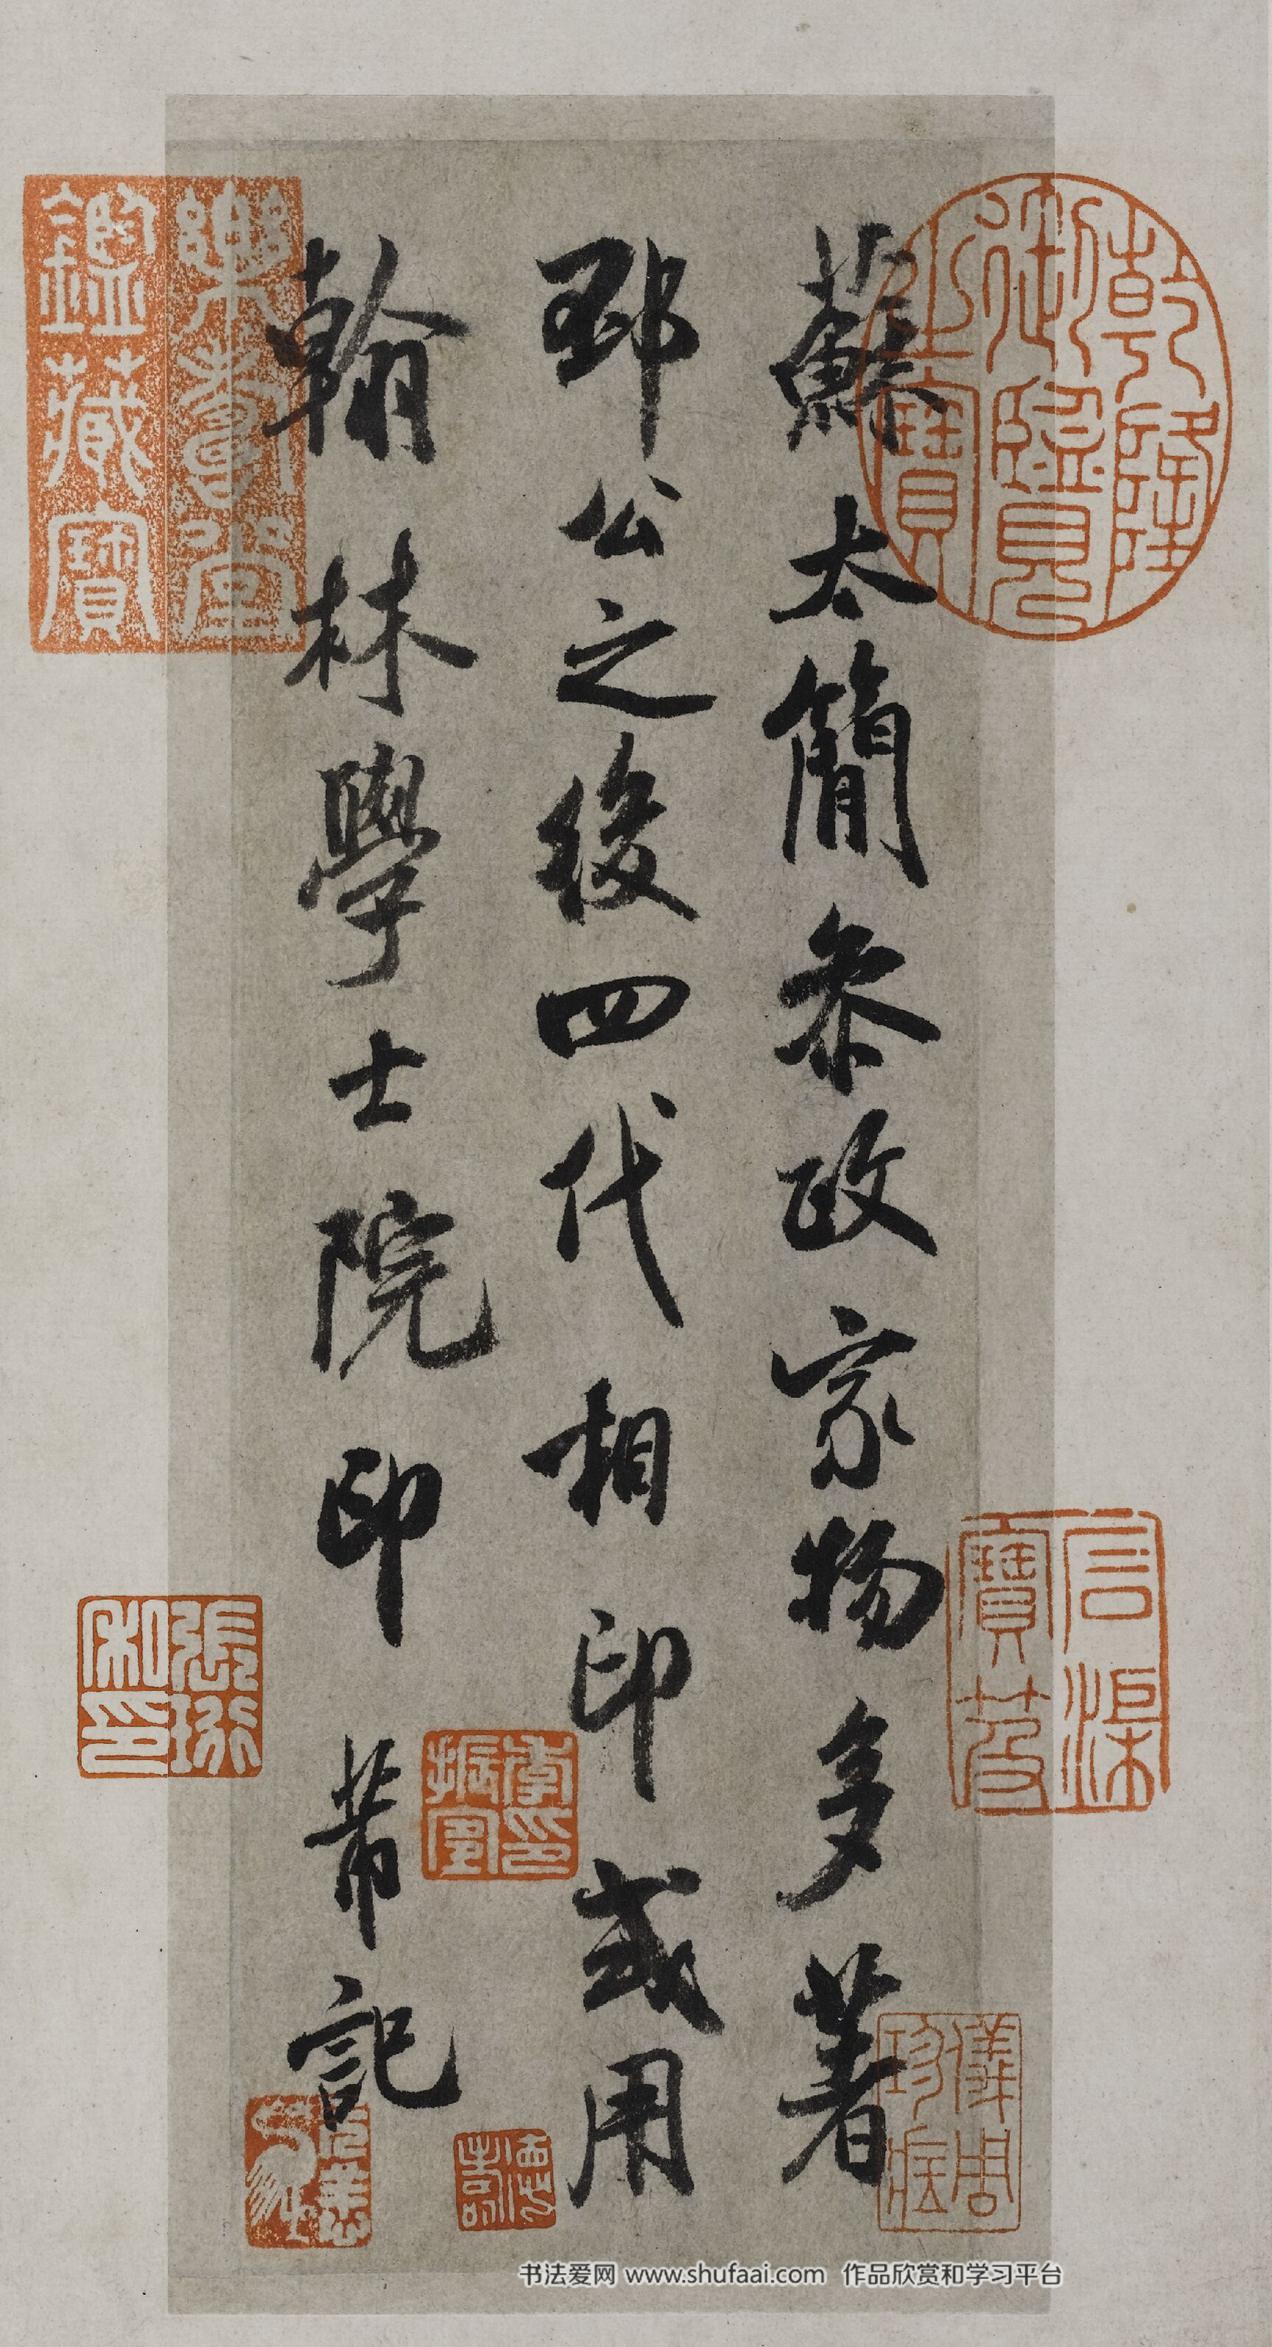 蘇太簡參政家物多著
邳公之後四代相印或用
翰林學士院印 芾記
乾隆御覽之寶
樂壽堂鑑藏寶
石渠寶笈
張珩私印
儀周珍藏
德壽
书法爱网 www.shufaai.com 作品欣赏和学习平台